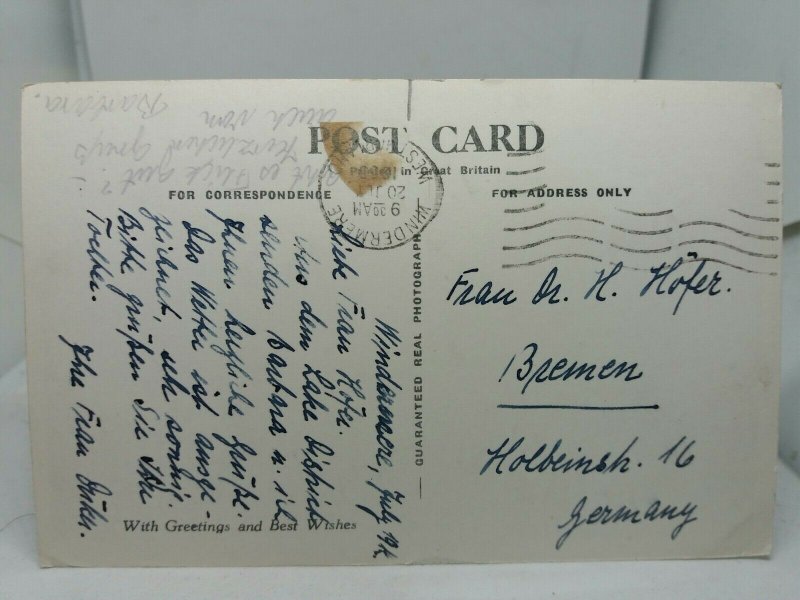 POST CARD
Printed in Great Britain
FOR CORRESPONDENCE
FOR ADDRESS ONLY
GUARANTEED REAL PHOTOGRAPH
WINDERMERE
9 30 AM
20 JL
WEST
Windermere, July
Liebe Frau Höfer.
Aus dem Lake District
senden Barbara u. ich
Ihnen herzliche Grüße.
Das Wetter ist ausge-
zeichnet, sehr sonnig.
Bitte grüßen Sie Ihre
Tochter.
Ihre Frau
Geht es Dir gut?
Herzlichen Gruß
auch von
Barbara.
With Greetings and Best Wishes
Frau Dr. H. Höfer.
Bremen
Holbeinstr. 16
Germany